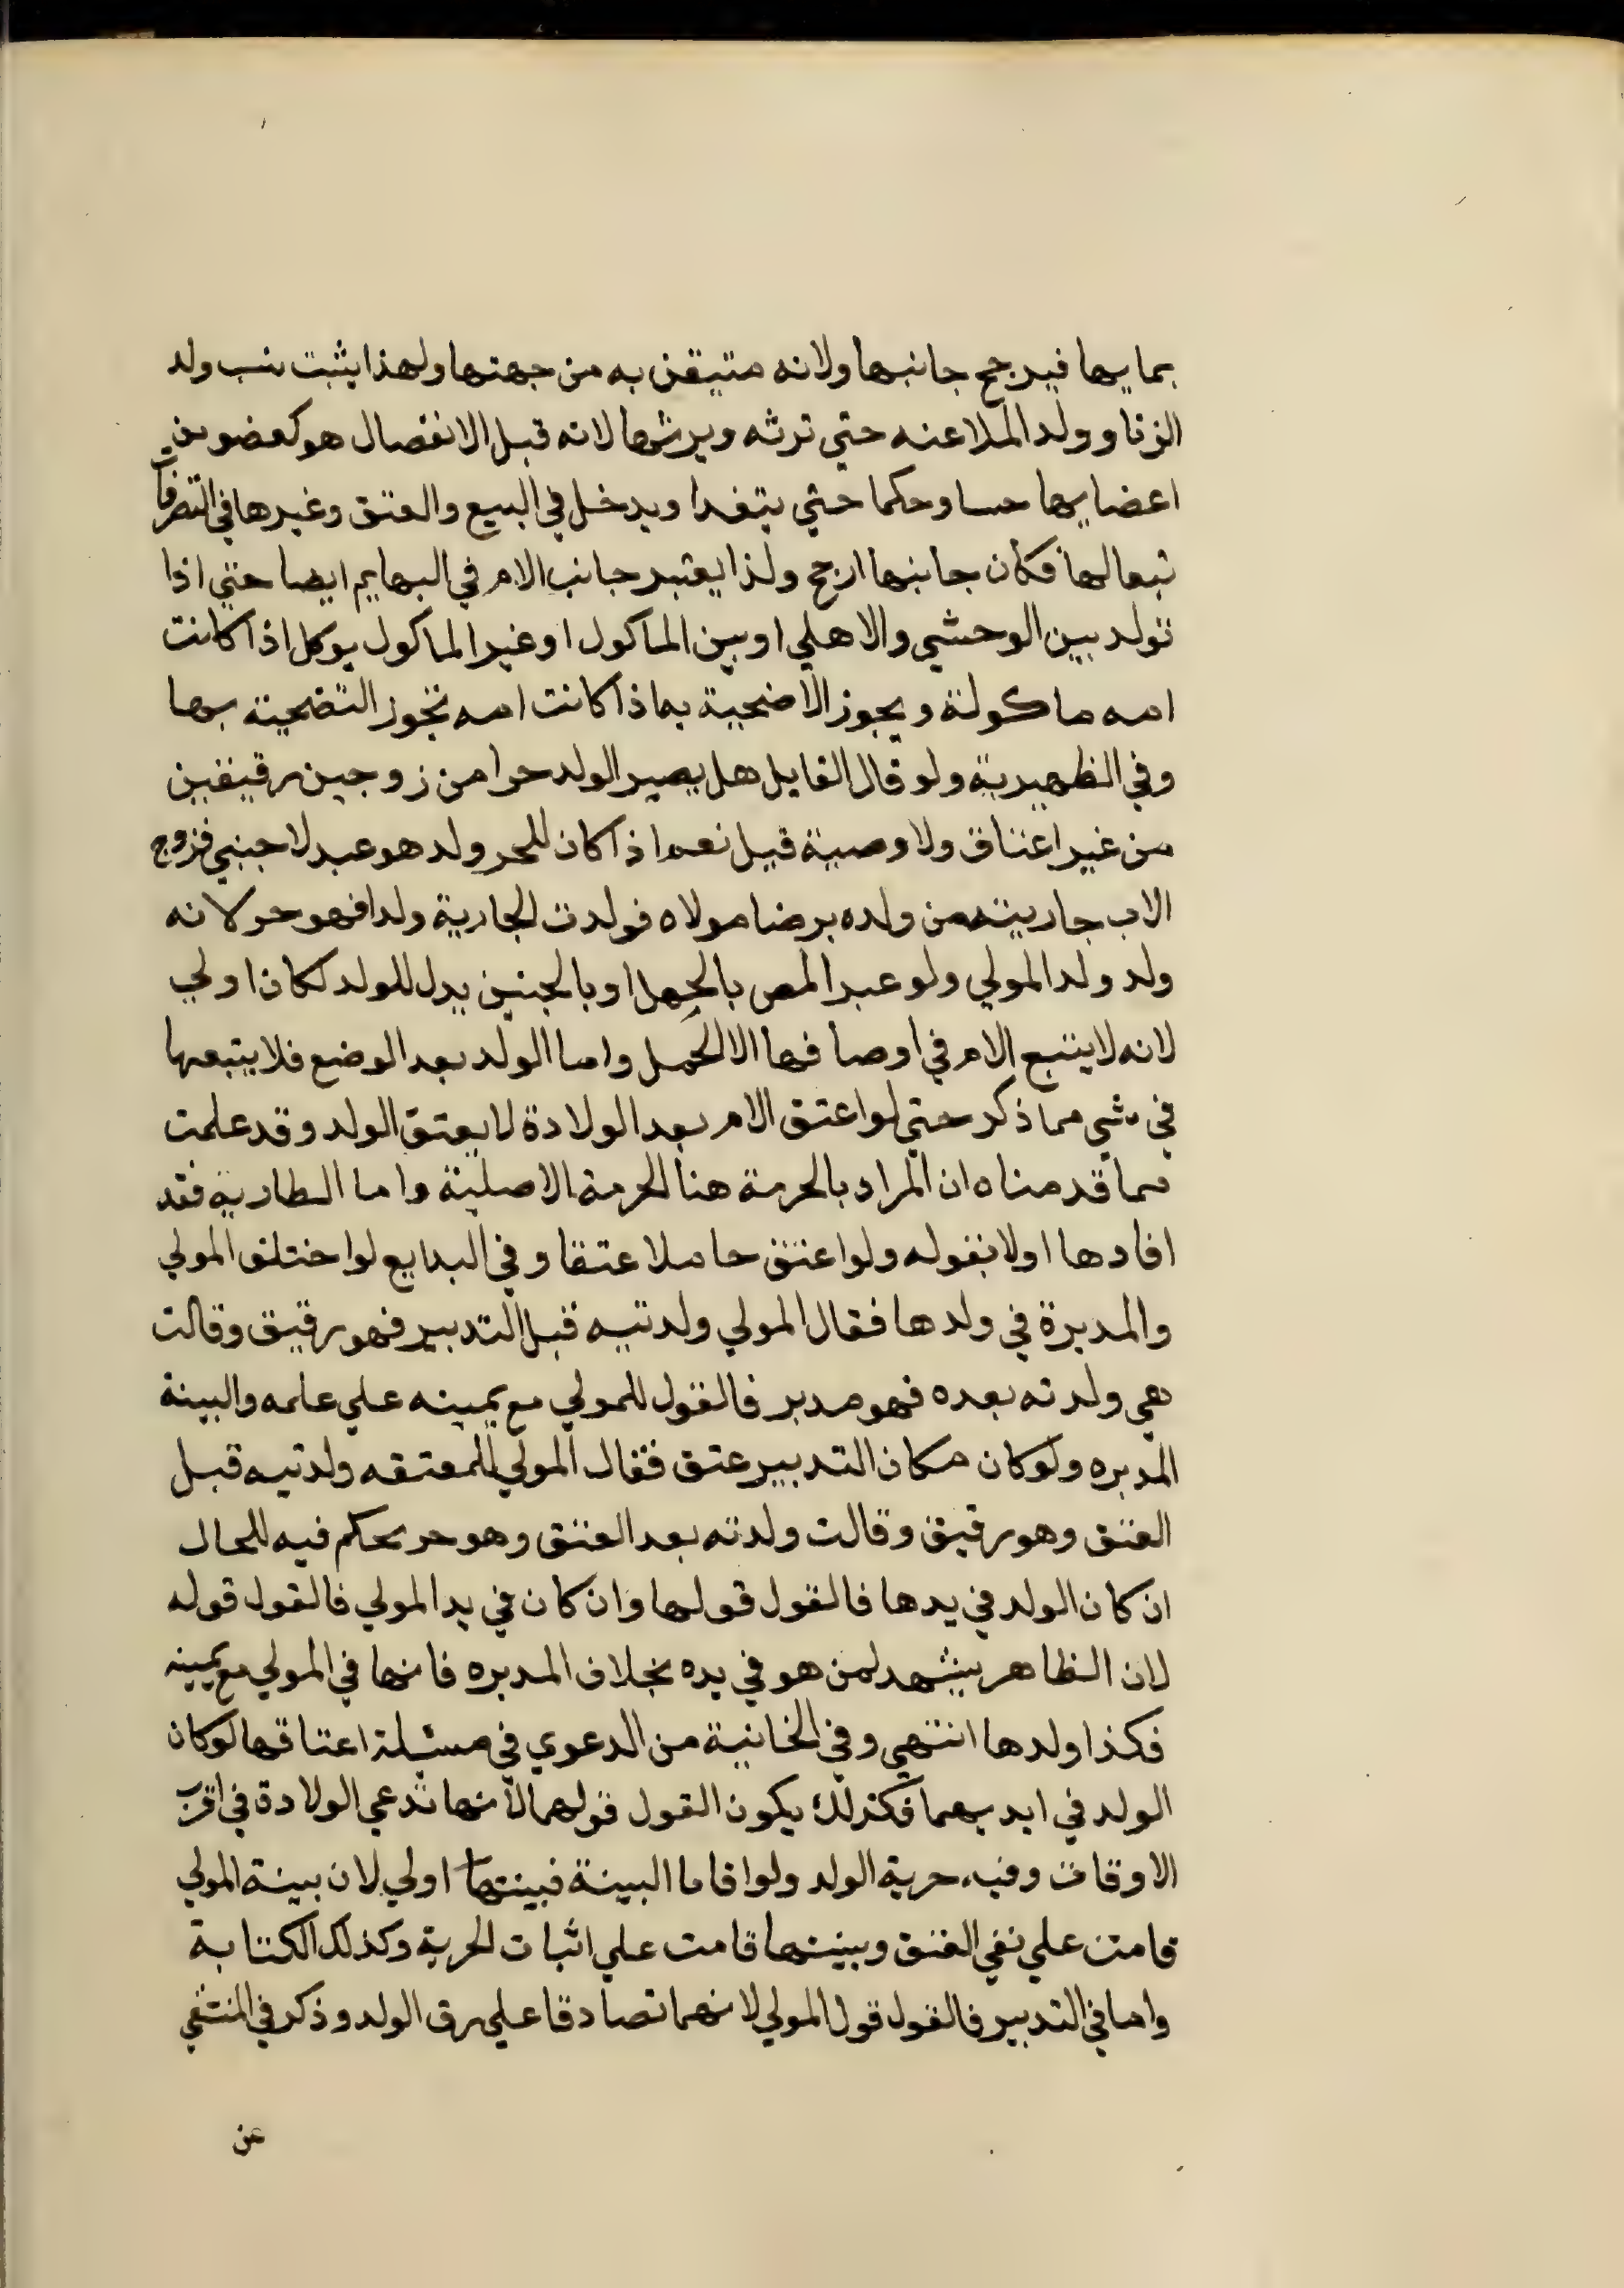 بمايها فيرجح جانبها ولانه متيقن به من جهتها ولهذا يثبت نسب ولد
الزنا وولد الملاعنه حتي ترثه ويرثها لانه قبل الانفصال هو كعضو من
اعضايها حسا وحكما حتي يتغدا ويدخل في البيع والعتق وغيرها في التصرفات
تبعا لها فكان جانبها ارجح ولذا يعتبر جانب الام في البهايم ايضا حتي اذا
تولد بين الوحشي والاهلي او بين الماكول او غير الماكول يوكل اذا كانت
امه ماكولة ويجوز الاضحية بها ذا كانت امه تجوز التضحية بها
وفي الظهيرية ولو قال القايل هل يصير الولد حرا من زوجين رقيقين
من غير اعتاق ولا وصية قيل نعم اذا كان للحر ولد هو عبد لاجنبي فزوج
الاب جاريته من ولده برضا مولاه فولدت الجارية ولدا فهو حر لانه
ولد ولد المولي ولو عبر المص بالحمل او بالجنين بدل الولد لكان اولي
لانه لا يتبع الام في اوصافها الا الحمل واما الولد بعد الوضع فلا يتبعها
في شي مما ذكر حتي لو اعتق الام بعد الولادة لا يعتق الولد وقد علمت
مما قدمناه ان المراد بالحرمة هنا الحرمة الاصلية واما الطارية فقد
افادها اولا بقوله ولو اعتق حاملا عتقا وفي البدايع لو اختلف المولي
والمدبرة في ولدها فقال المولي ولدتيه قبل التدبير فهو رقيق وقالت
هي ولدته بعده فهو مدبر فالقول للمولي مع يمينه علي علمه والبينة
المدبره ولو كان مكان التدبير عتق فقال المولي للمعتقه ولدتيه قبل
العتق وهو رقيق وقالت ولدته بعد العتق وهو حر يحكم فيه للحال
ان كان الولد في يدها فالقول قولها وان كان في يد المولي فالقول قوله
لان الظاهر يشهد لمن هو في يده بخلاف المدبره فانها في المولي مع يمينه
فكذا ولدها انتهي وفي الخانية من الدعوي في مسئلة اعتاقها لو كان
الولد في ايديهما فكذلك يكون القول قولهما لانها تدعي الولادة في اقرب
الاوقات وفيه حرية الولد ولو اقاما البينة فبينتها اولي لان بينة المولي
قامت علي نفي العتق وبينتها قامت علي اثبات الحرية وكذلك الكتابة
واما في التدبير فالقول قول المولي لانهما تصادقا علي رق الولد وذكر في المنتقي
عن